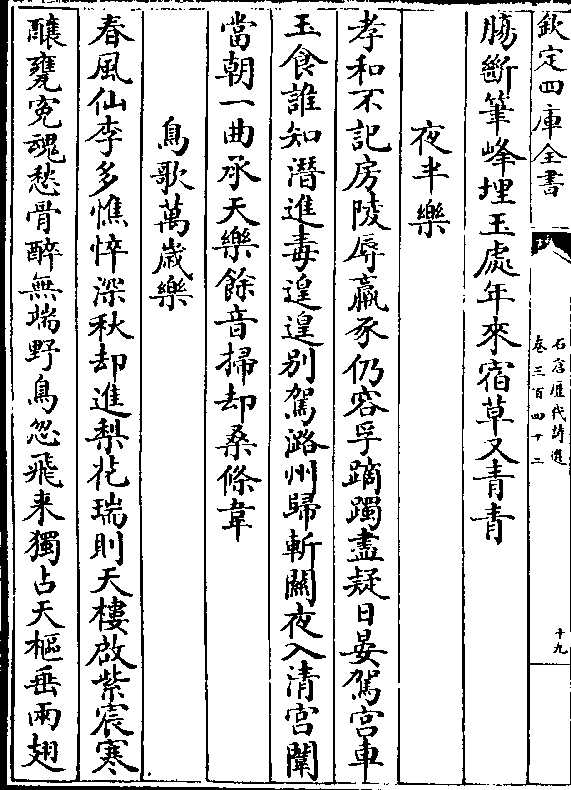 欽定四庫全書
石倉歷代詩選
卷三百四十二
十九
腸斷筆峰埋玉處年來宿草又青青
夜半樂
孝和不記房陵辱羸豕仍容孚蹢躅盡疑日晏駕宮車
玉食誰知潛進毒遑遑别駕潞州歸斬關夜入清宮闈
當朝一曲承天樂餘音掃却桑條韋
鳥歌萬歲樂
春風仙李多憔悴深秋却進梨花瑞則天樓啟紫宸寒
醸甕寃魂愁骨醉無端野鳥忽飛来獨占天樞垂兩翅